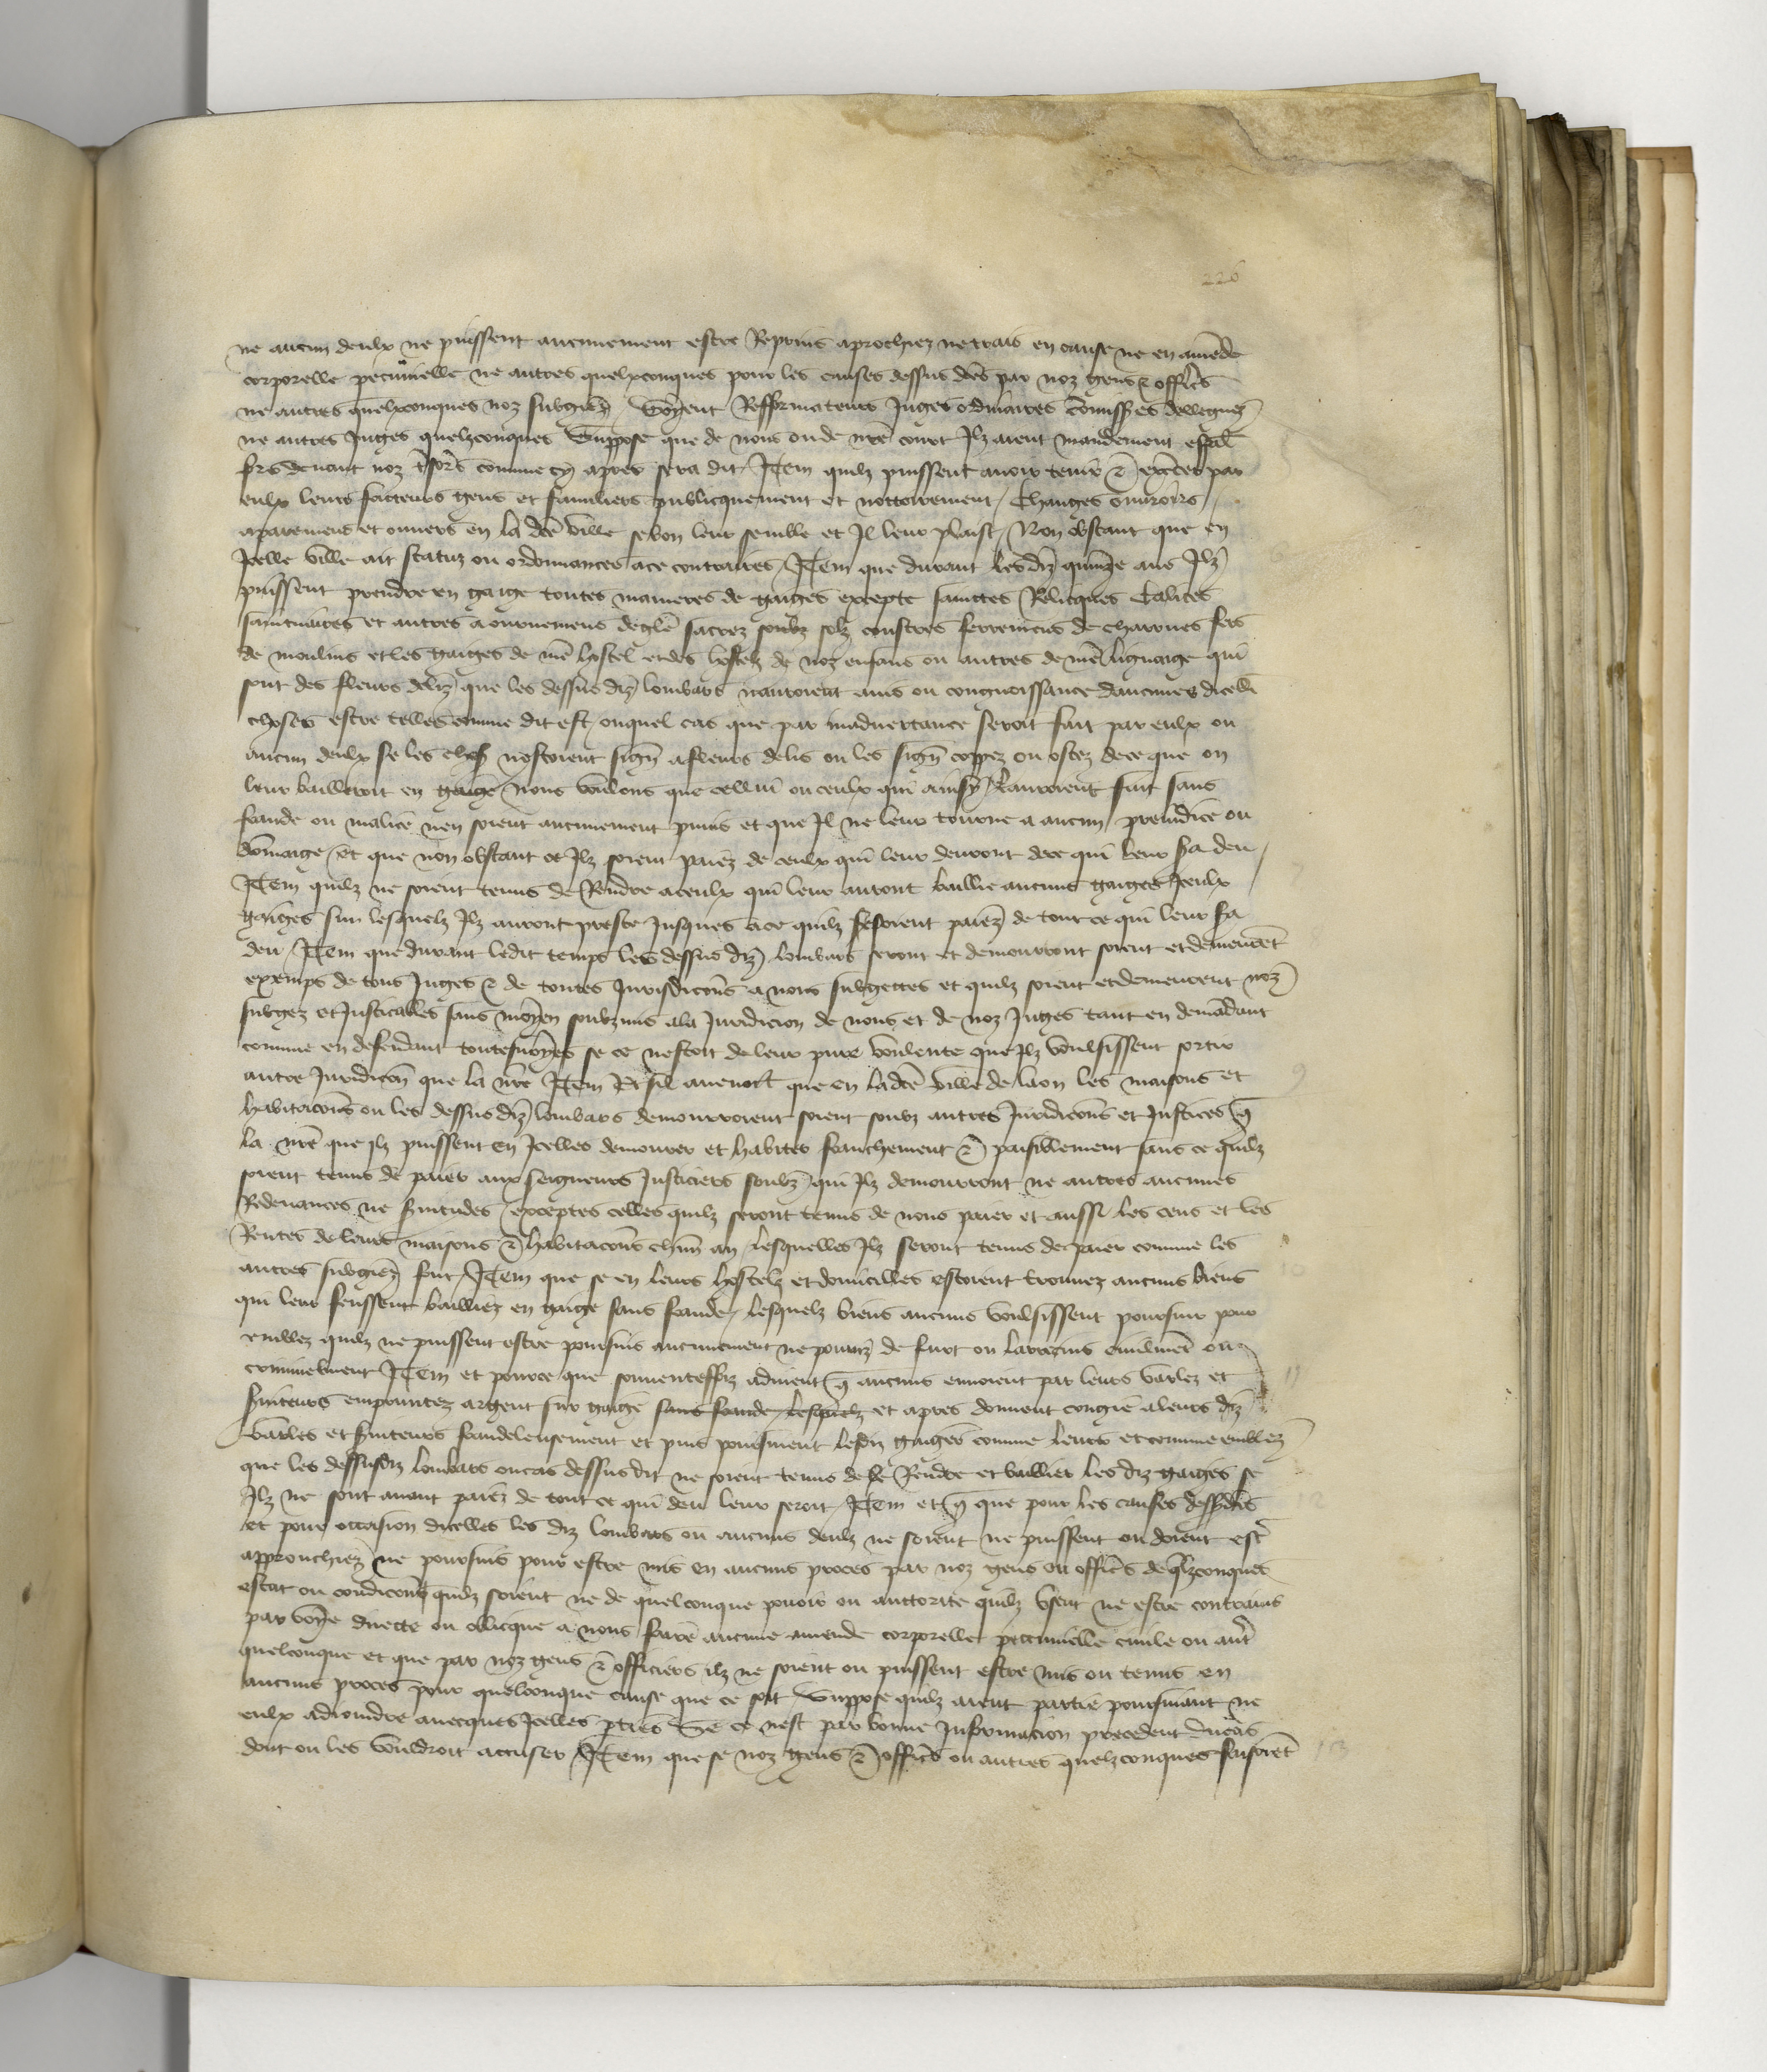 226
ne aucun deulx ne puissent aucunement estre Reprins aprochiez ne trais en cause ne en amēde
corporelle pecunielle ne autres quelxconques pour les causes dessus dc̄es par noz gens & offic̄rs
ne autres quelxconques noz subgiez Soyent Refformateurs Juges ordinaires Cōmissres deleguez
ne autres Juges quelzconques Suppose que de nous ou de nr̄e court Jlz aient mandement esp̄al
fors devant noz tresor̄s comme cy apres sera dit Jtem quilz puissent avoir tenir & excercer par
eulx leurs facteurs gens et familiers publicquement et nottoirement Changes ouvroirs
aparemens et ouvers en la dc̄e ville selon leur semble et Jl leur plaist Non obstant que en
Jcelle ville ait statuz ou ordonnances a ce contraires Jtem que durant lesdiz quinze ans Jlz
puissent prendre en gaige toutes manieres de gaiges excepte sainctes Relicques Calices
sainctuaires et autres aournemens deglē sacrez soubz solz coustres ferremens de charrues fers
de moulins et les gaiges de nr̄e hostel et des hostelz de noz enfans ou autres de nr̄e lignaige qui
sont des fleurs deliz que les dessus diz lombars nauroient avis ou congnoissance daucunes dicelles
choses estre telles comme dit est ouquel cas que par inadvertance seroit fait par eulx ou
aucun deulx se les choses nestoient sign̄ a fleurs delis ou les sign̄ coppez ou ostez de ce que on
leur bailleroit en gaige nous voulons que cellui ou ceulx qui ainsy lauroient fait sans
fraude ou malice nen soient aucunement punis et que Jl ne leur tourne a aucun preiudice ou
dommaige Et que non obstant ce Jlz soient paiez de ceulx qui leur devront de ce qui leur sera deu
Jtem quilz ne soient tenus de Rendre a ceulx qui leur auront baillie aucuns gaiges Jceulx
gaiges sur lesquelz Jlz auront preste Jusques a ce quilz soient paiez de tout ce qui leur sera
deu Jtem que durant ledit temps les dessus diz lombars seront et demourront soient et demeurēt
exemps de tous Juges & de toutes Juridicōns a nous subgectes et quilz soient et demeurent noz
subgez et Justicables sans moyen soubzmis a la Juridicion de nous et de noz Juges tant en demādant
comme en defendant toutesvoyes se ce nestoit de leur pure voulente que Jlz voulsissent sortir
autre Juridicōn que la nr̄e Jtem Et sil avenoit que en ladc̄e ville de laon les maisons et
habitacōns ou les dessus diz lombars demourroient soient soubz autres Juridicōns et Justices q̄
la nr̄e que Jlz puissent en Jcelles demourer et habiter franchement & paisiblement sans ce quilz
soient tenus de paier aux seigneurs Justiciers soubz qui Jlz demourront ne autres aucunes
Redevances ne servitudes exceptes celles quilz seront tenus de nous paier et aussi les cens et les
Rentes de leurs maisons & habitacōns chūn an lesquelles Jlz seront tenus de paier comme les
autres subgiez font Jtem que se en leurs hostelz et domicilles estoient trouvez aucuns biens
qui leur feussent bailliez en gaige sans fraude lesquelz biens aucuns voulsissent poursuir pour
emblez quilz ne puissent estre poursuis aucunement ne pouniz de furt ou larrecins civilmēt ou
criminelment Jtem et pource que souventeffoiz advient q̄ aucuns envoient par leurs varlez et
serviteurs empruntez argent sur gaige sans fraude lesquelz et apres donnent congie a leurs diz
varles et serviteurs fraudeleusement et puis poursuient lesdiz gaiges comme leurs et comme emblez
que les dessusdiz lombars ou cas dessus dit ne soient tenus de le Rendre et baillier les diz gaiges se
Jlz ne sont avant paiez de tout ce qui deu leur seroit Jtem et q̄ que pour les causes dessusdc̄es
et pour occasion dicelles les diz lombars ou aucuns deulz ne soient ne puissent ou doient estr̄
approuchiez ne poursuis pour estre mis en aucuns proces par noz gens ou offic̄rs de q̄lzconques
estat ou condicōns quilz soient ne de quelconque povoir ou auttorite quilz usent ne estre contrains
par voye directe ou oblicque a nous faire aucune amende corporelle peccunielle civile ou autr̄
quelconque et que par noz gens & officiers ilz ne soient ou puissent estre mis ou tenus en
aucuns proces pour quelconque cause que ce soit Suppose quilz aient partie poursuiant ne
eulx adioindre avecques Jcelles pties Se ce nest par bonne Informacion precedent du cas
dont on les vouldroit accuser Jtem que se noz gens & offic̄rs ou autres quelzconques faisoiēt
7
9
10
11
12
13